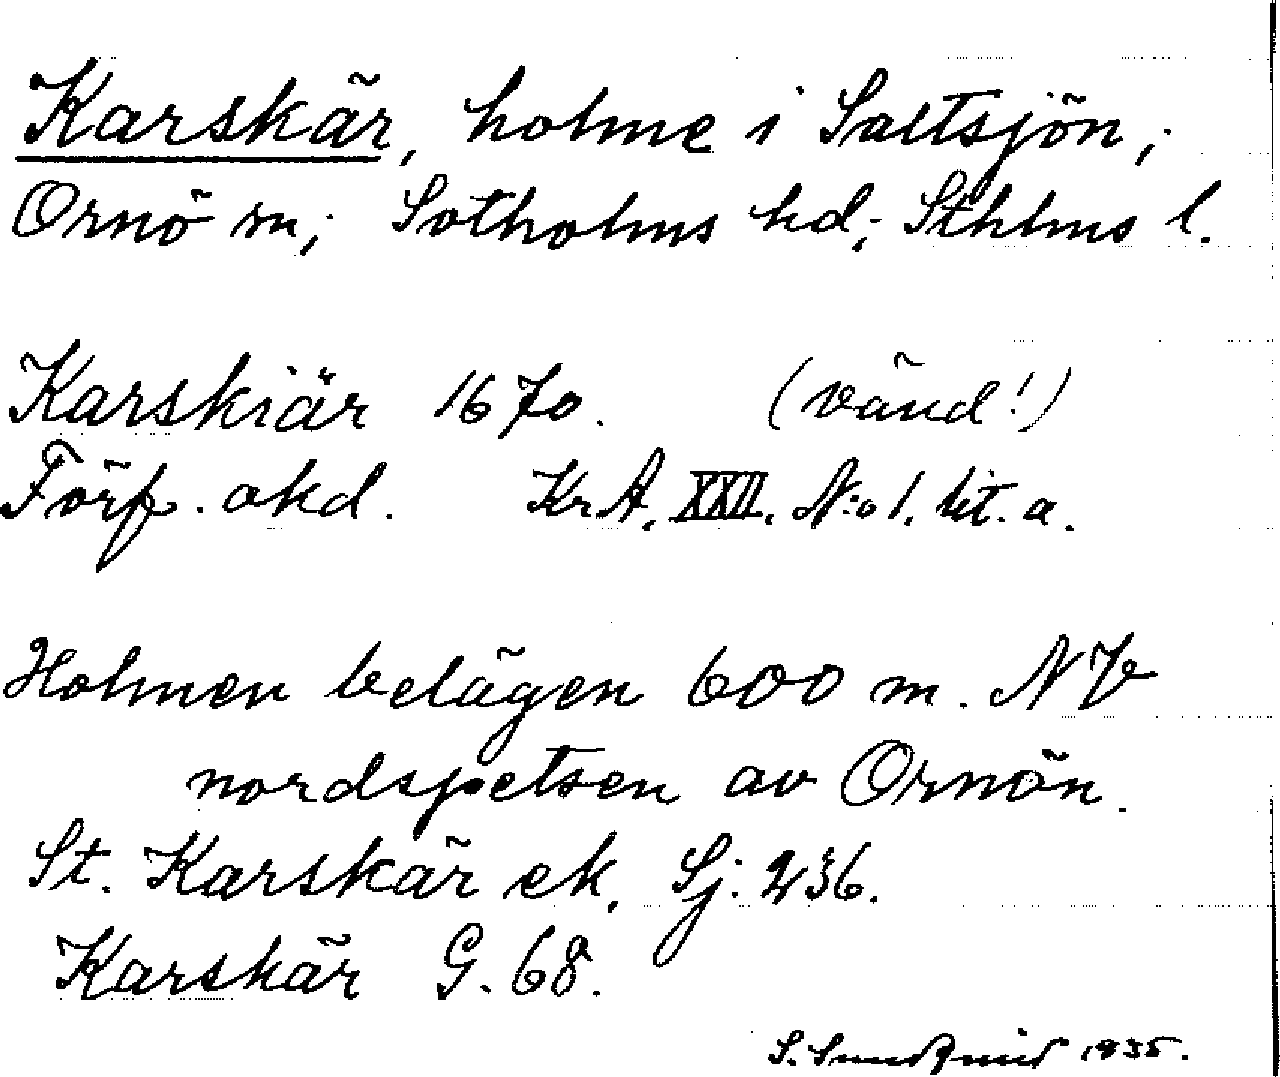 Karskär, holme i Saltsjön,
Ornö sn; Sotholms hd; Sthlms l.
Karskiär 1670. (vänd!)
Förf. okd. KrA. XXII. N:o 1. lit. a.
Holmen belägen 600 m. NV
nordspetsen av Ornön.
St. Karskär ek. Sj: 236.
Karskär G. 68.
S. Sundqvist 1935.